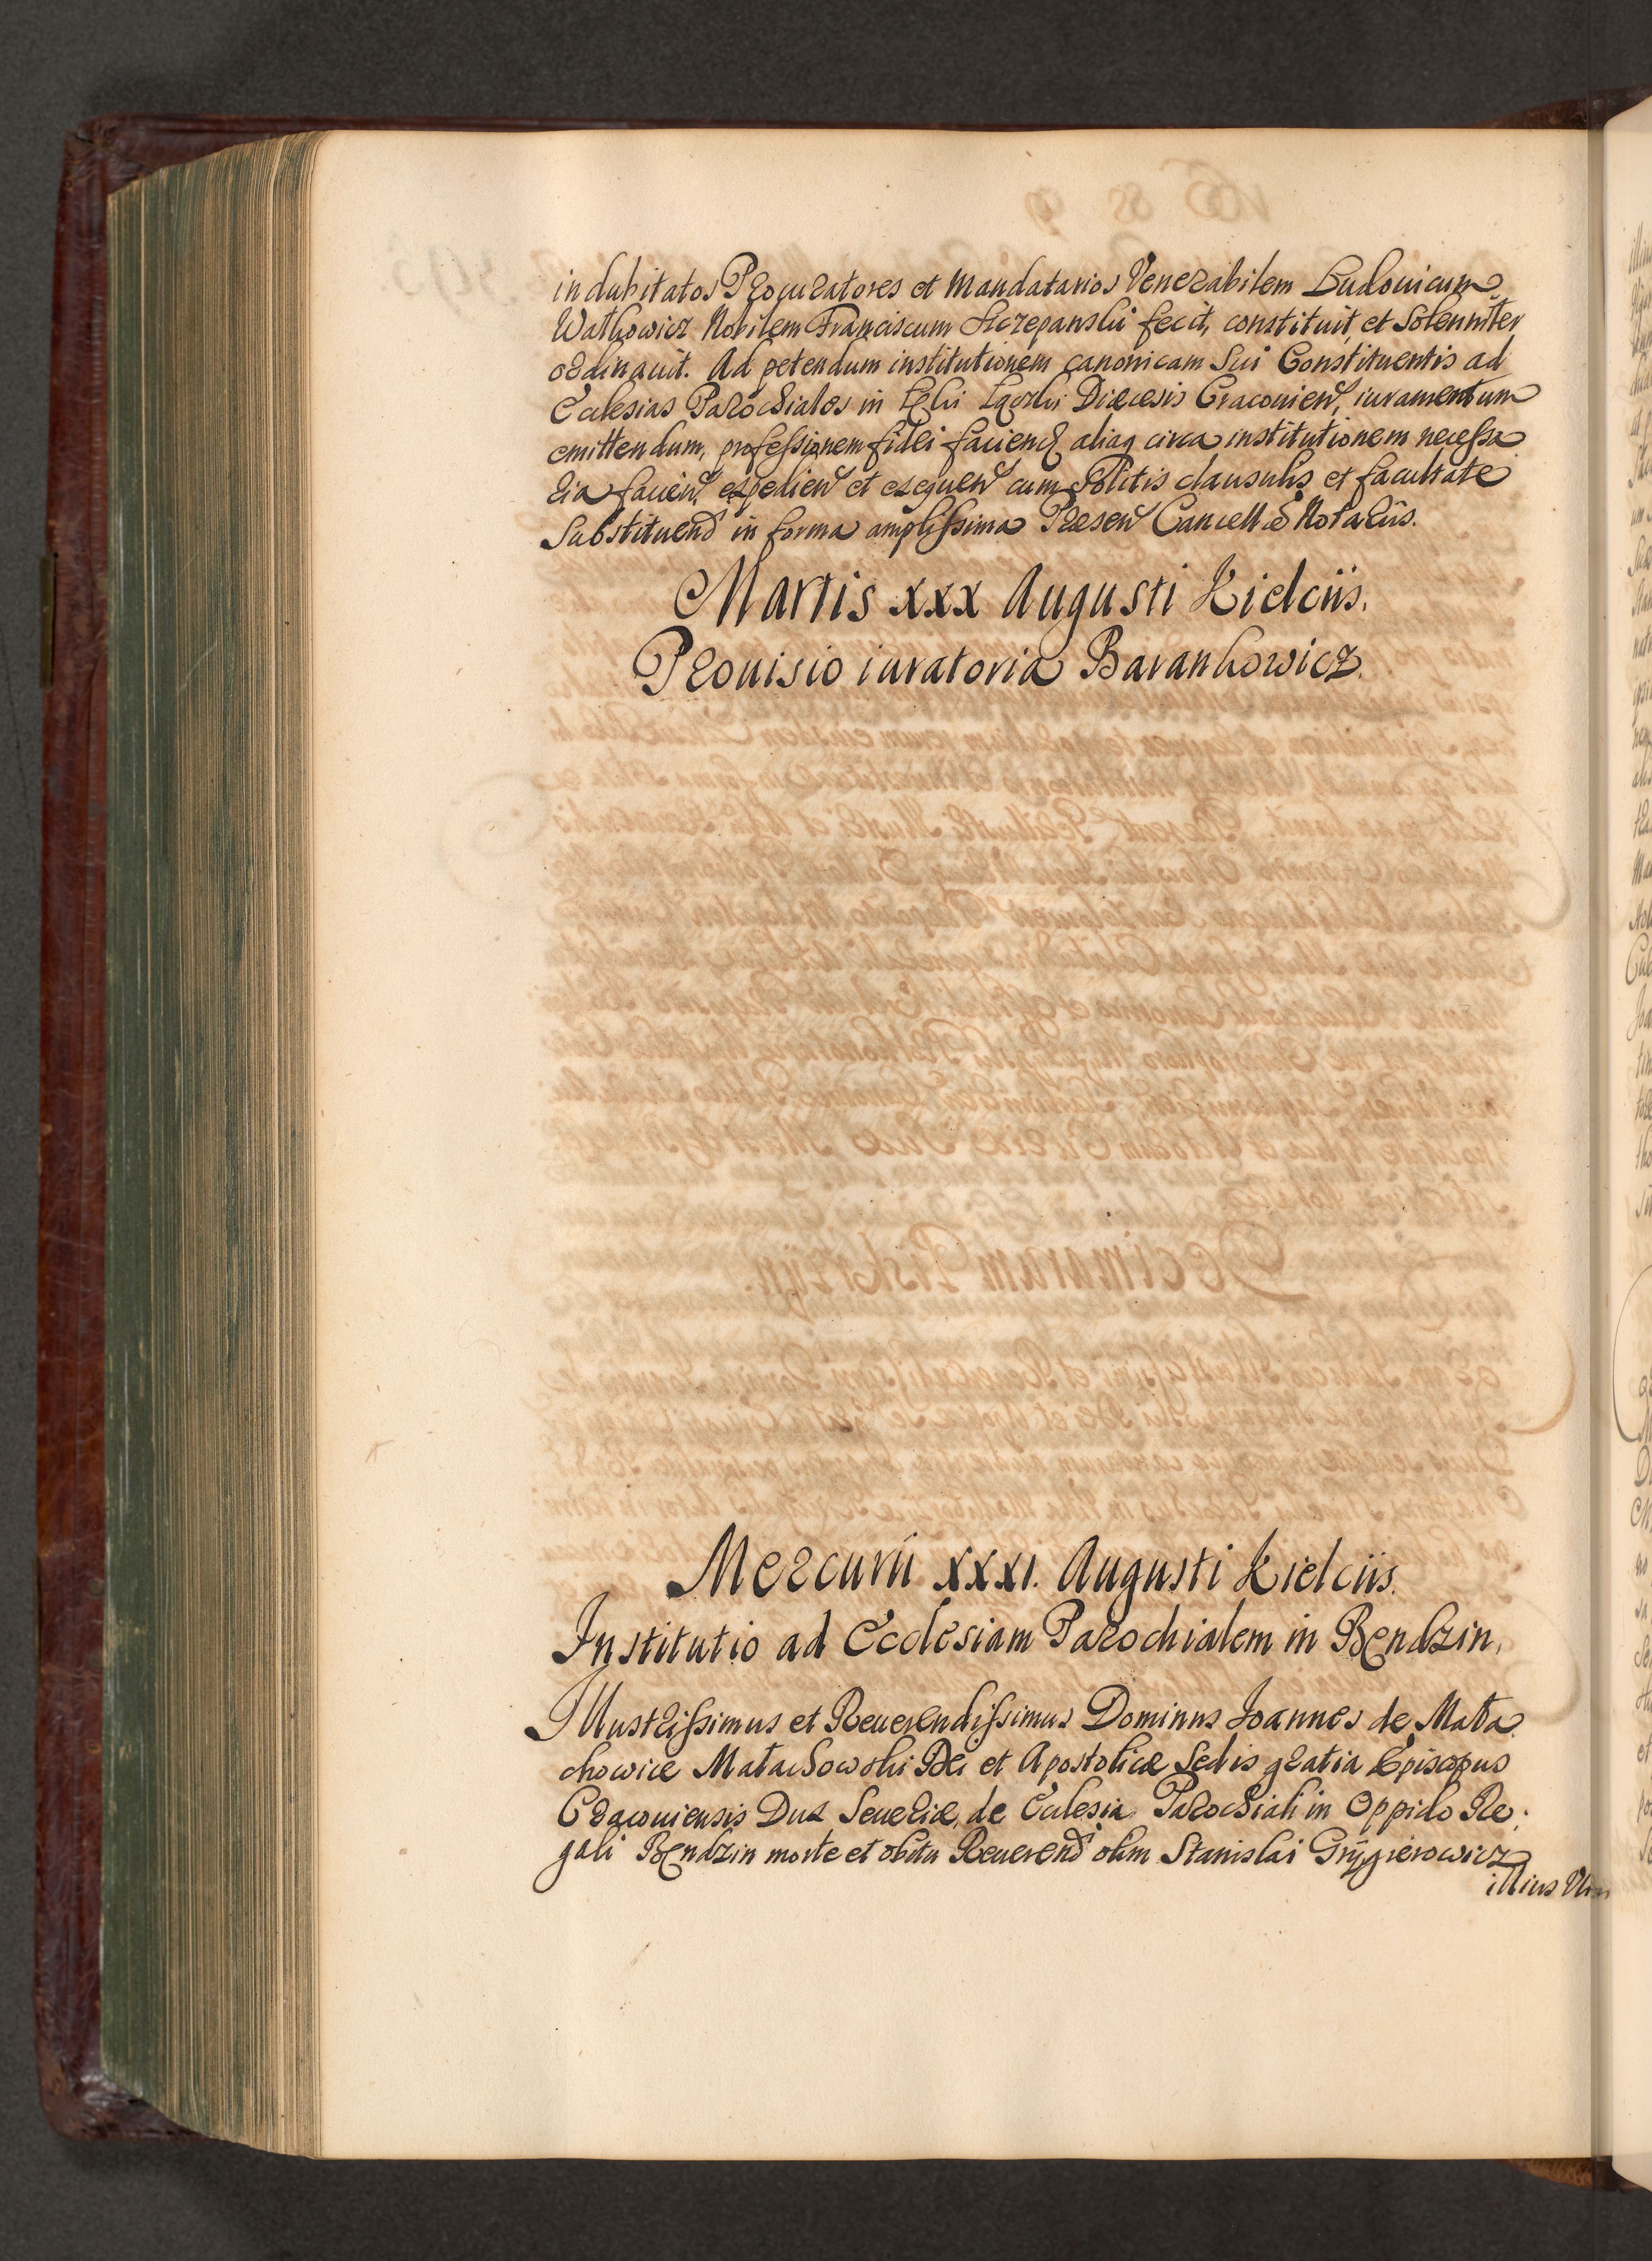 indubitatos Procuratores et Mandatarios Venerabilem Ludouicum
Watkowicz Nobilem Franciscum Sczepanski fecit, constituit, et Solenniter
ordinauit. Ad petendum institutionem canonicam Sui Constituentis ad
Ecclesias Parochiales in Diæcesis Cracouien, iuramentum
emittendum, professionem fidei faciend aliaq circa institutionem necessa
ria facien, expedien et exequen cum Solitis clausulis et facultate
Substituend in forma amplissima Presen Cancell Notariis.
Martis xxx Augusti Kielciis.
Prouisio iuratoria Barankowicz.
Mercurii xxxi. Augusti Kielciis.
Institutio ad Ecclesiam Parochialem in Bendzin.
Illustrissimus et Reuerendissimus Dominus Joannes de Mała
chowice Małachowski Dei et Apostolicæ Sedis gratia Episcopus
Cracouiensis Dux Seueriæ, de Ecclesia Parochiali in Oppido Re
gali Bendzin morte et obitu Reuerend olim Stanislai Grÿgierowicz
illius